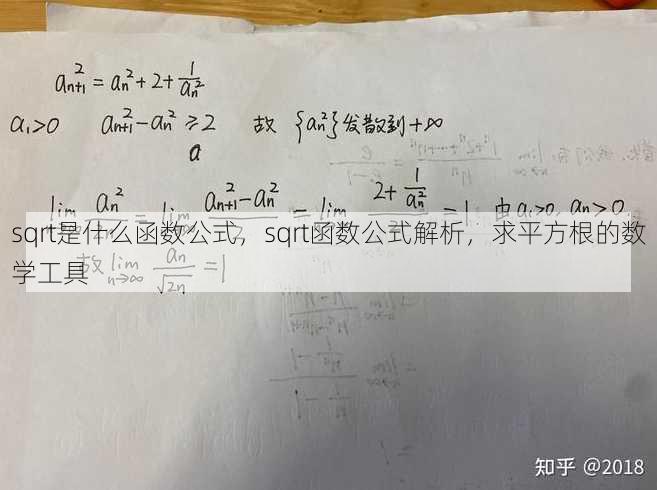 a_{n+1}^2 = a_n^2 + 2 + \frac{1}{a_n^2}
a_1>0 a_{n+1}^2 - a_n^2 ≥ 2 故 {a_n^2}发散到+∞
a
lim \frac{a_n^2}{} = lim \frac{a_{n+1}^2 - a_n^2}{} = lim \frac{2+\frac{1}{a_n^2}}{} = 1 由a_1>0, a_n>0
sqrt是什么函数公式，sqrt函数公式解析，求平方根的数
学工具
故 \lim_{n→∞} \frac{a_n}{\sqrt{2n}} = 1
知乎 @2018